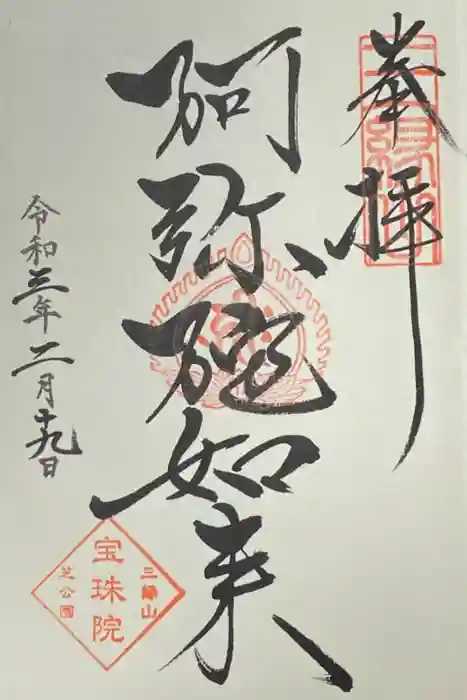 奉拝
阿弥陀如来
令和三年二月十九日
三縁山
宝珠院
芝公園